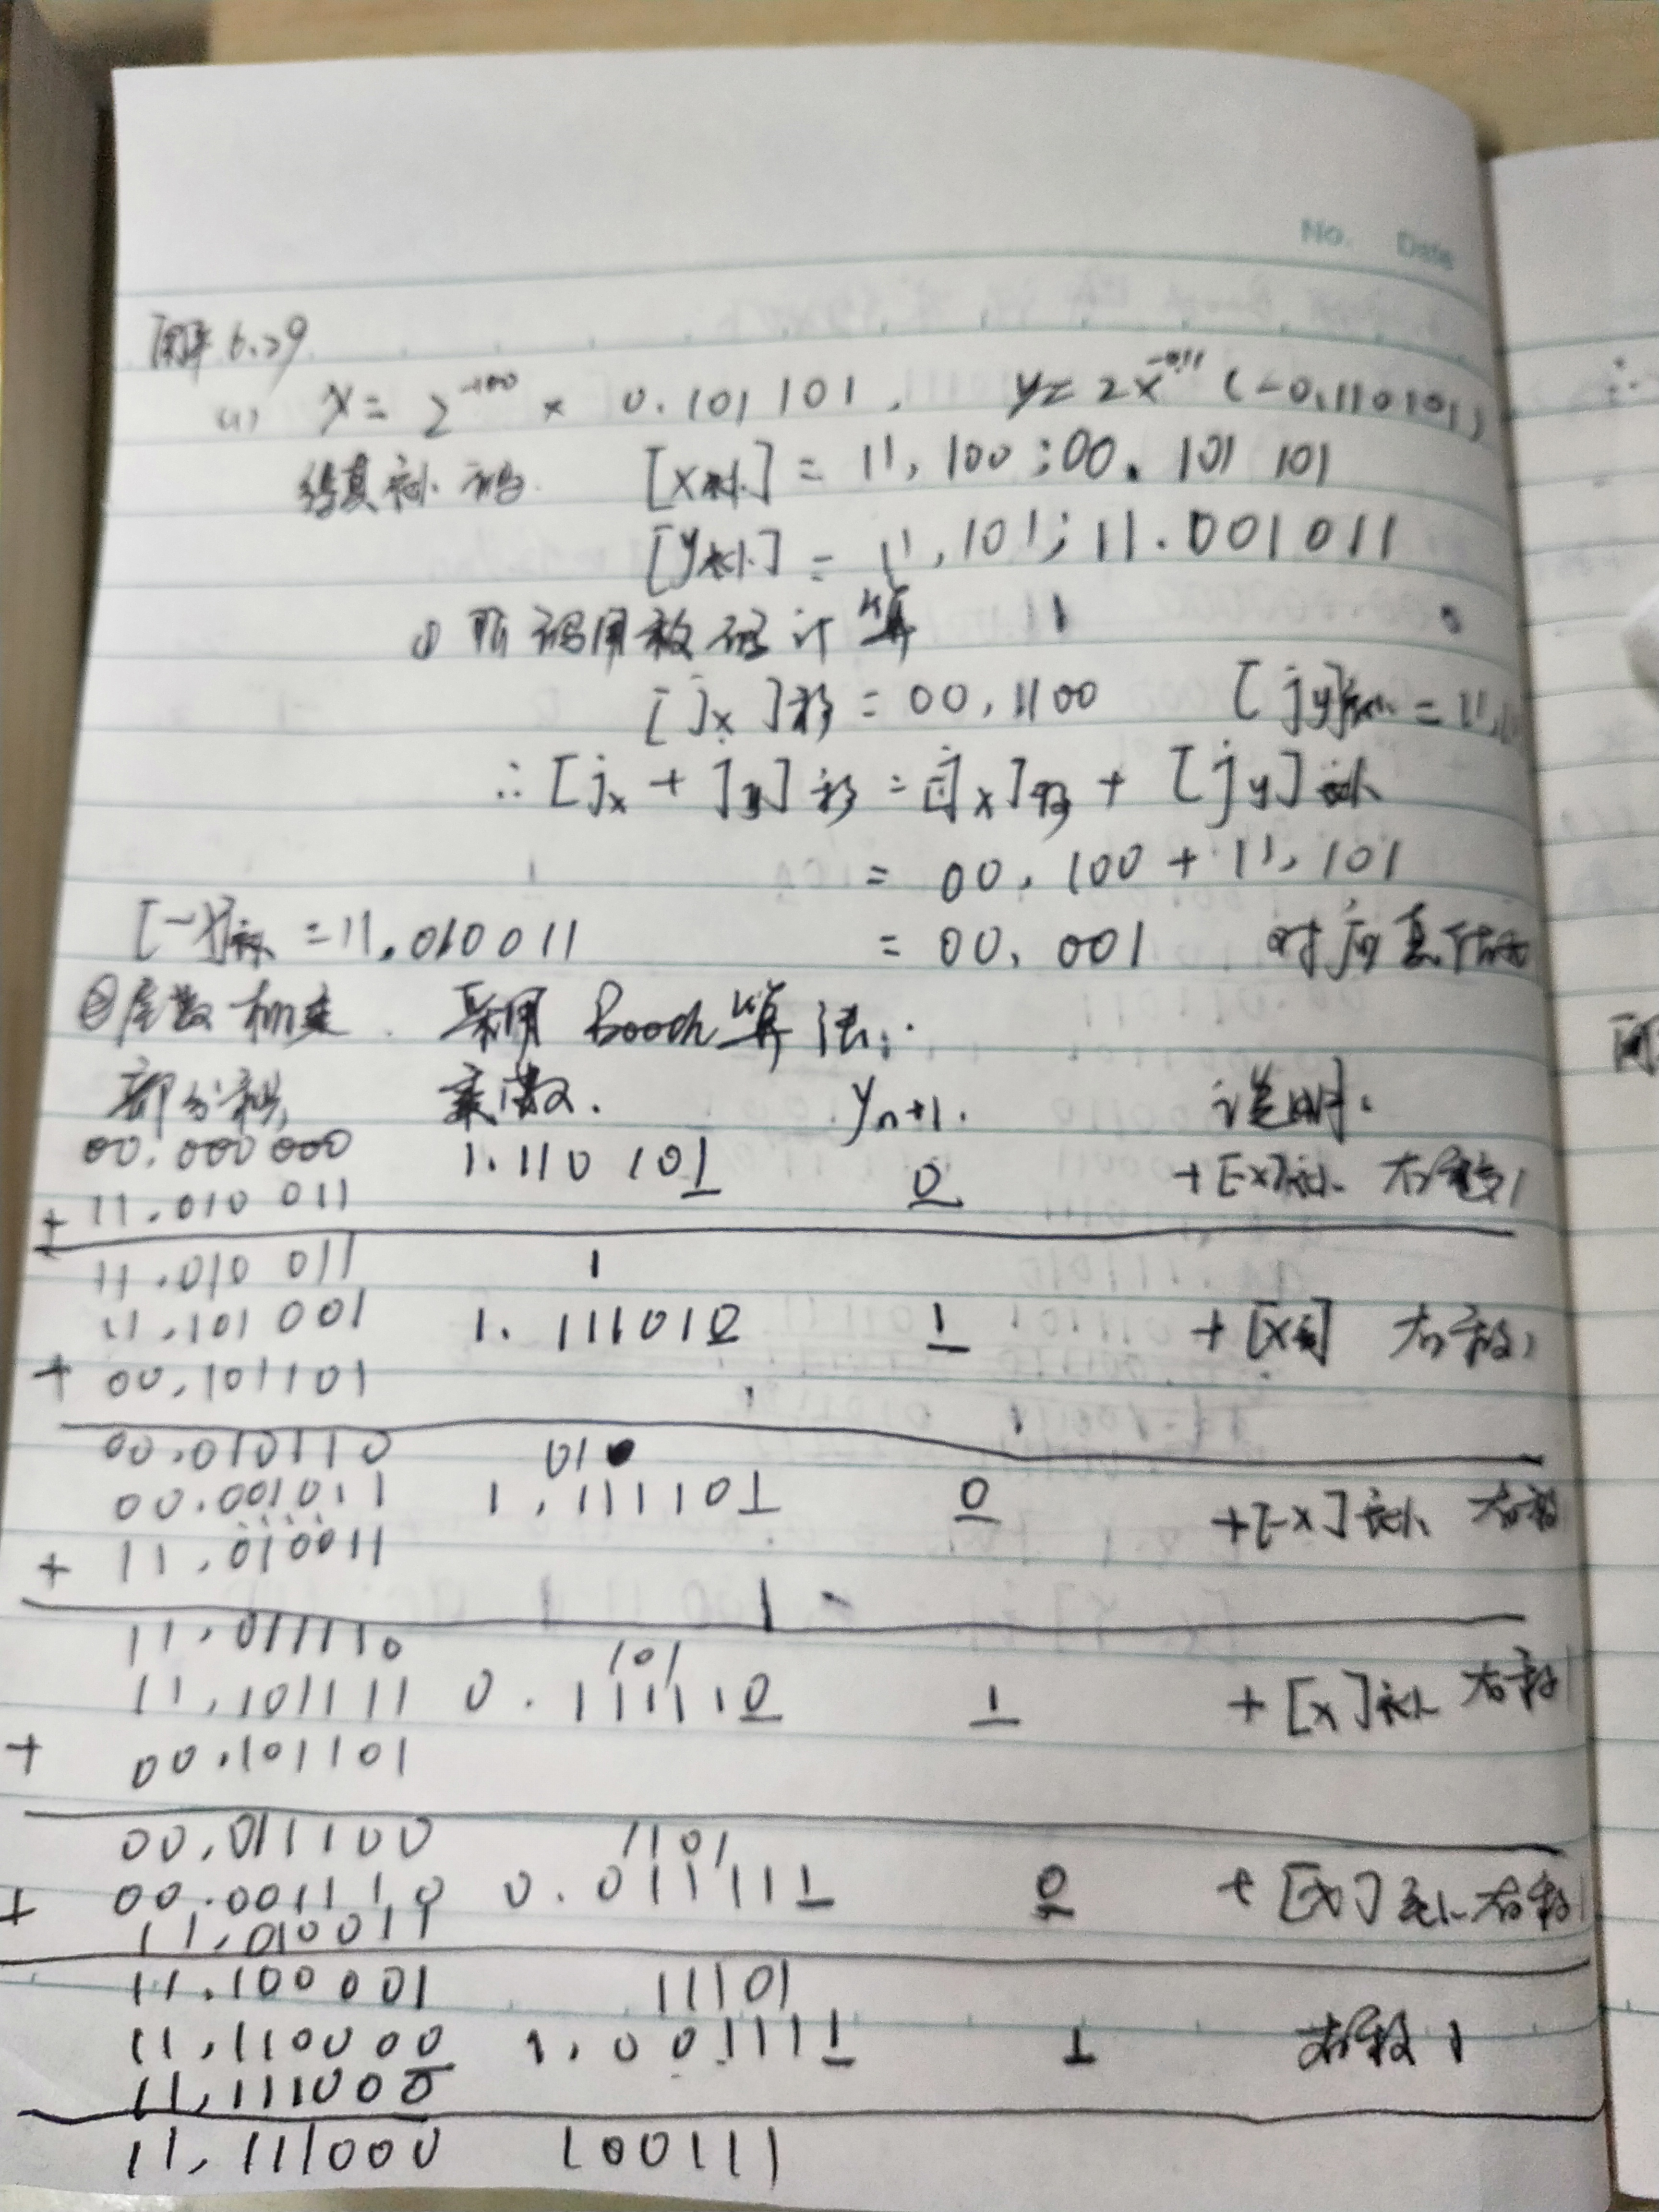 No. Date
解 6.29
(1) x = 2^-100 × 0.101 101, y = 2×^-011 (-0.110101)
[x补] = 11,100;00.101 101
[y补] = 11,101;11.001011
① 阶码用移码计算
[jx]移 = 00,1100 [jy]补 = 11,
∴[jx + jy]移 = [jx]移 + [jy]补
= 00,100 + 11,101
[-x]补 = 11.010011 = 00,001 对应真值
②尾数相乘 采用 Booch算法:
部分积 乘数. yn+1. 说明.
00.000 000 1.110 101 0 +[-x]补 右移1
+ 11.010 011
11.010 011 1
11.101 001 1.111010 1 +[x补] 右移1
+ 00.101101
00.010110 01
00.001011 1.111101 0 +[-x]补 右移
+ 11.010011
11.011110 101
11.101111 0.111110 1 +[x]补 右移1
+ 00.101101
00.011100 1101
+ 00.001110 0.011111 0 +[-x]补 右移1
11.010011
11.100 001 11101
11.110000 1.001111 1 右移1
11.111000
11.111000 100111